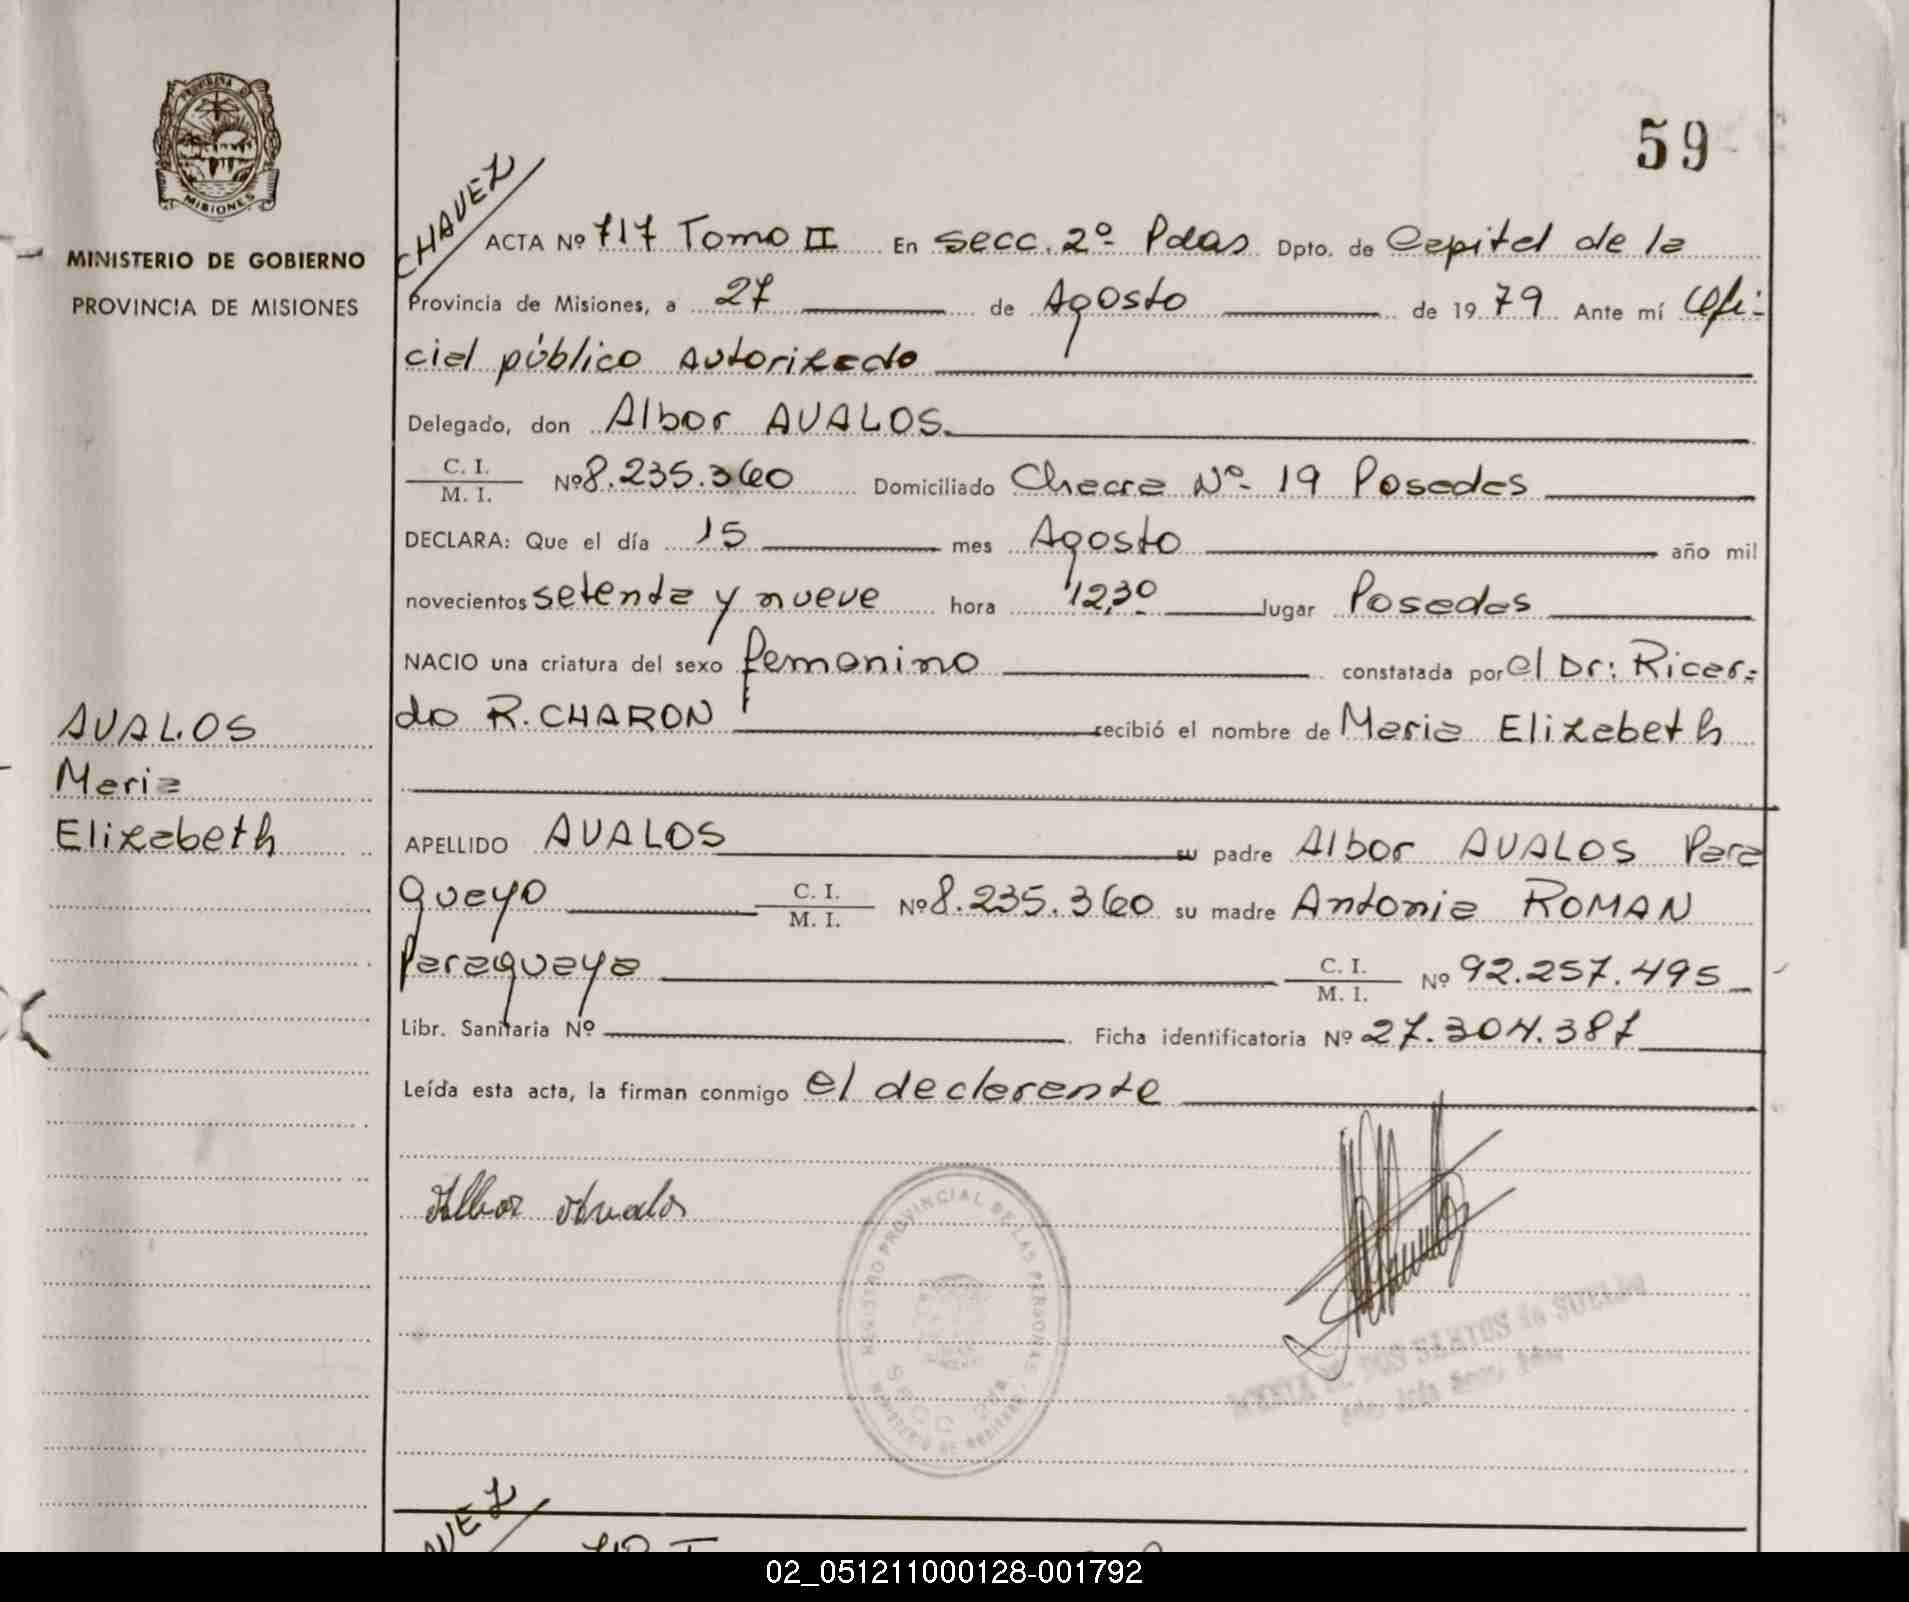 59
CHAVEZ
PROVINCIA D
MISIONES
MINISTERIO DE GOBIERNO
PROVINCIA DE MISIONES
ACTA Nº 717 Tomo II En secc. 2º Pdas Dpto. de Capital de la
Provincia de Misiones, a 27 de Agosto de 1979 Ante mí Ofi-
cial público autorizado
Delegado, don Albor AVALOS.
C. I.
M. I. Nº 8.235.360 Domiciliado Chacra Nº 19 Posadas
DECLARA: Que el día 15 mes Agosto año mil
novecientos setenta y nueve hora 12,30 lugar Posadas
NACIO una criatura del sexo femenino constatada por el Dr: Ricar-
do R. CHARON recibió el nombre de Maria Elizabeth
AVALOS
Maria
Elizabeth
APELLIDO AVALOS su padre Albor AVALOS Para
guayo C. I.
M. I. Nº 8.235.360 su madre Antonia ROMAN
Paraguaya C. I.
M. I. Nº 92.257.495
Libr. Sanitaria Nº Ficha identificatoria Nº 27.304.387
Leída esta acta, la firman conmigo el declarante
Albor Avalos
REGISTRO PROVINCIAL DE LAS PERSONAS
SECC 2da
DOS SANTOS de
02_051211000128-001792